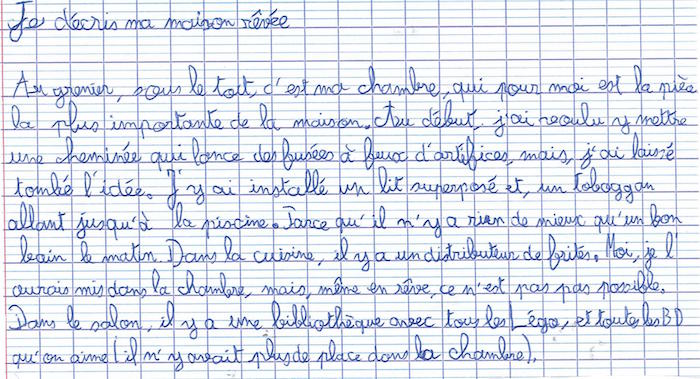 Je décris ma maison rêvée
Au grenier, sous le toit, c'est ma chambre, qui pour moi est la pièce
la plus importante de la maison. Au début j'ai voulu y mettre
une cheminée qui lance des fusées à feux d'artifices, mais, j'ai laissé
tombé l'idée. J'y ai installé un lit superposé et, un toboggan
allant jusqu'à la piscine. Parce qu'il n'y a rien de mieux qu'un bon
bain le matin. Dans la cuisine, il y a un distributeur de frites. Moi, je l'
aurais mis dans la chambre, mais, même en rêve, ce n'est pas pas possible.
Dans le salon, il y a une bibliothèque avec tous les Légo, et toutes les BD
qu'on aime (il n'y avait plus de place dans la chambre).